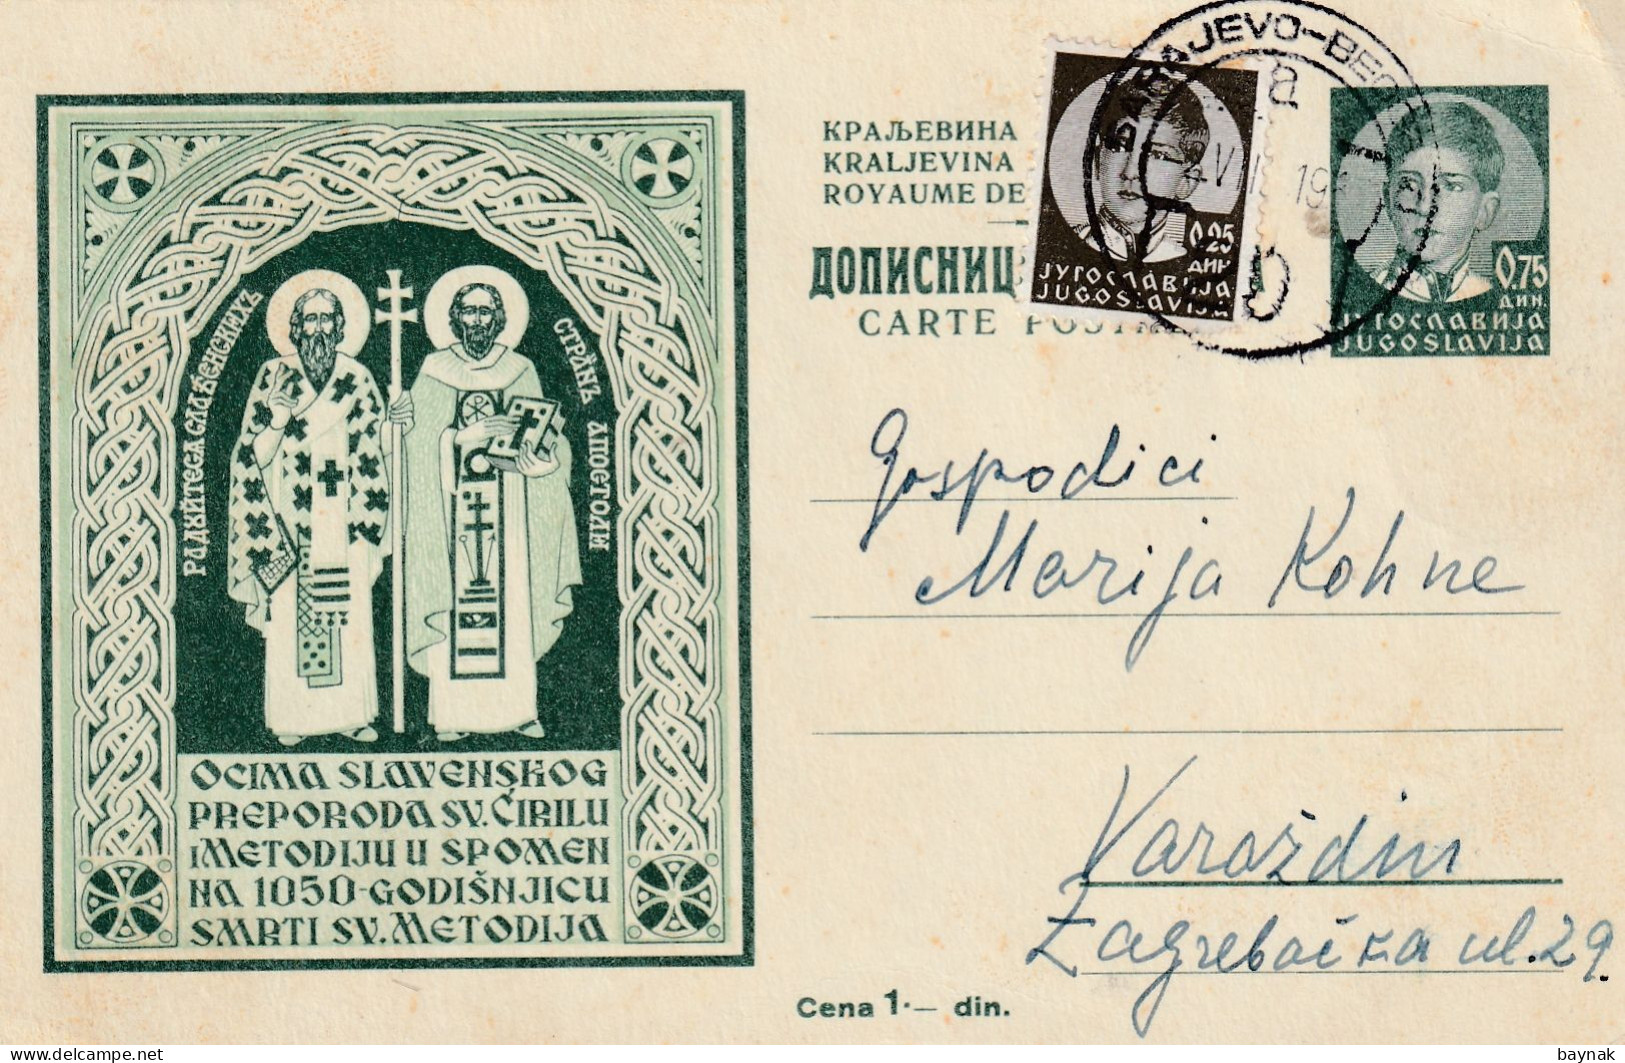 КРАЉЕВИНА
KRALJEVINA
ROYAUME DE
ДОПИСНИЦ
CARTE
0,25
ДИН
ЈУГОСЛАВИЈА
JUGOSLAVIJA
0,75
ДИН.
ЈУГОСЛАВИЈА
JUGOSLAVIJA
a
СТРАНЪ АПОСТОЛИ
OCIMA SLAVENSKOG
PREPORODA SV. ĆIRILU
I METODIJU U SPOMEN
NA 1050-GODIŠNJICU
SMRTI SV. METODIJA
Gospodici
Marija Kohne
Varaždin
Zagrebačka ul. 29.
Cena 1·— din.
baynak